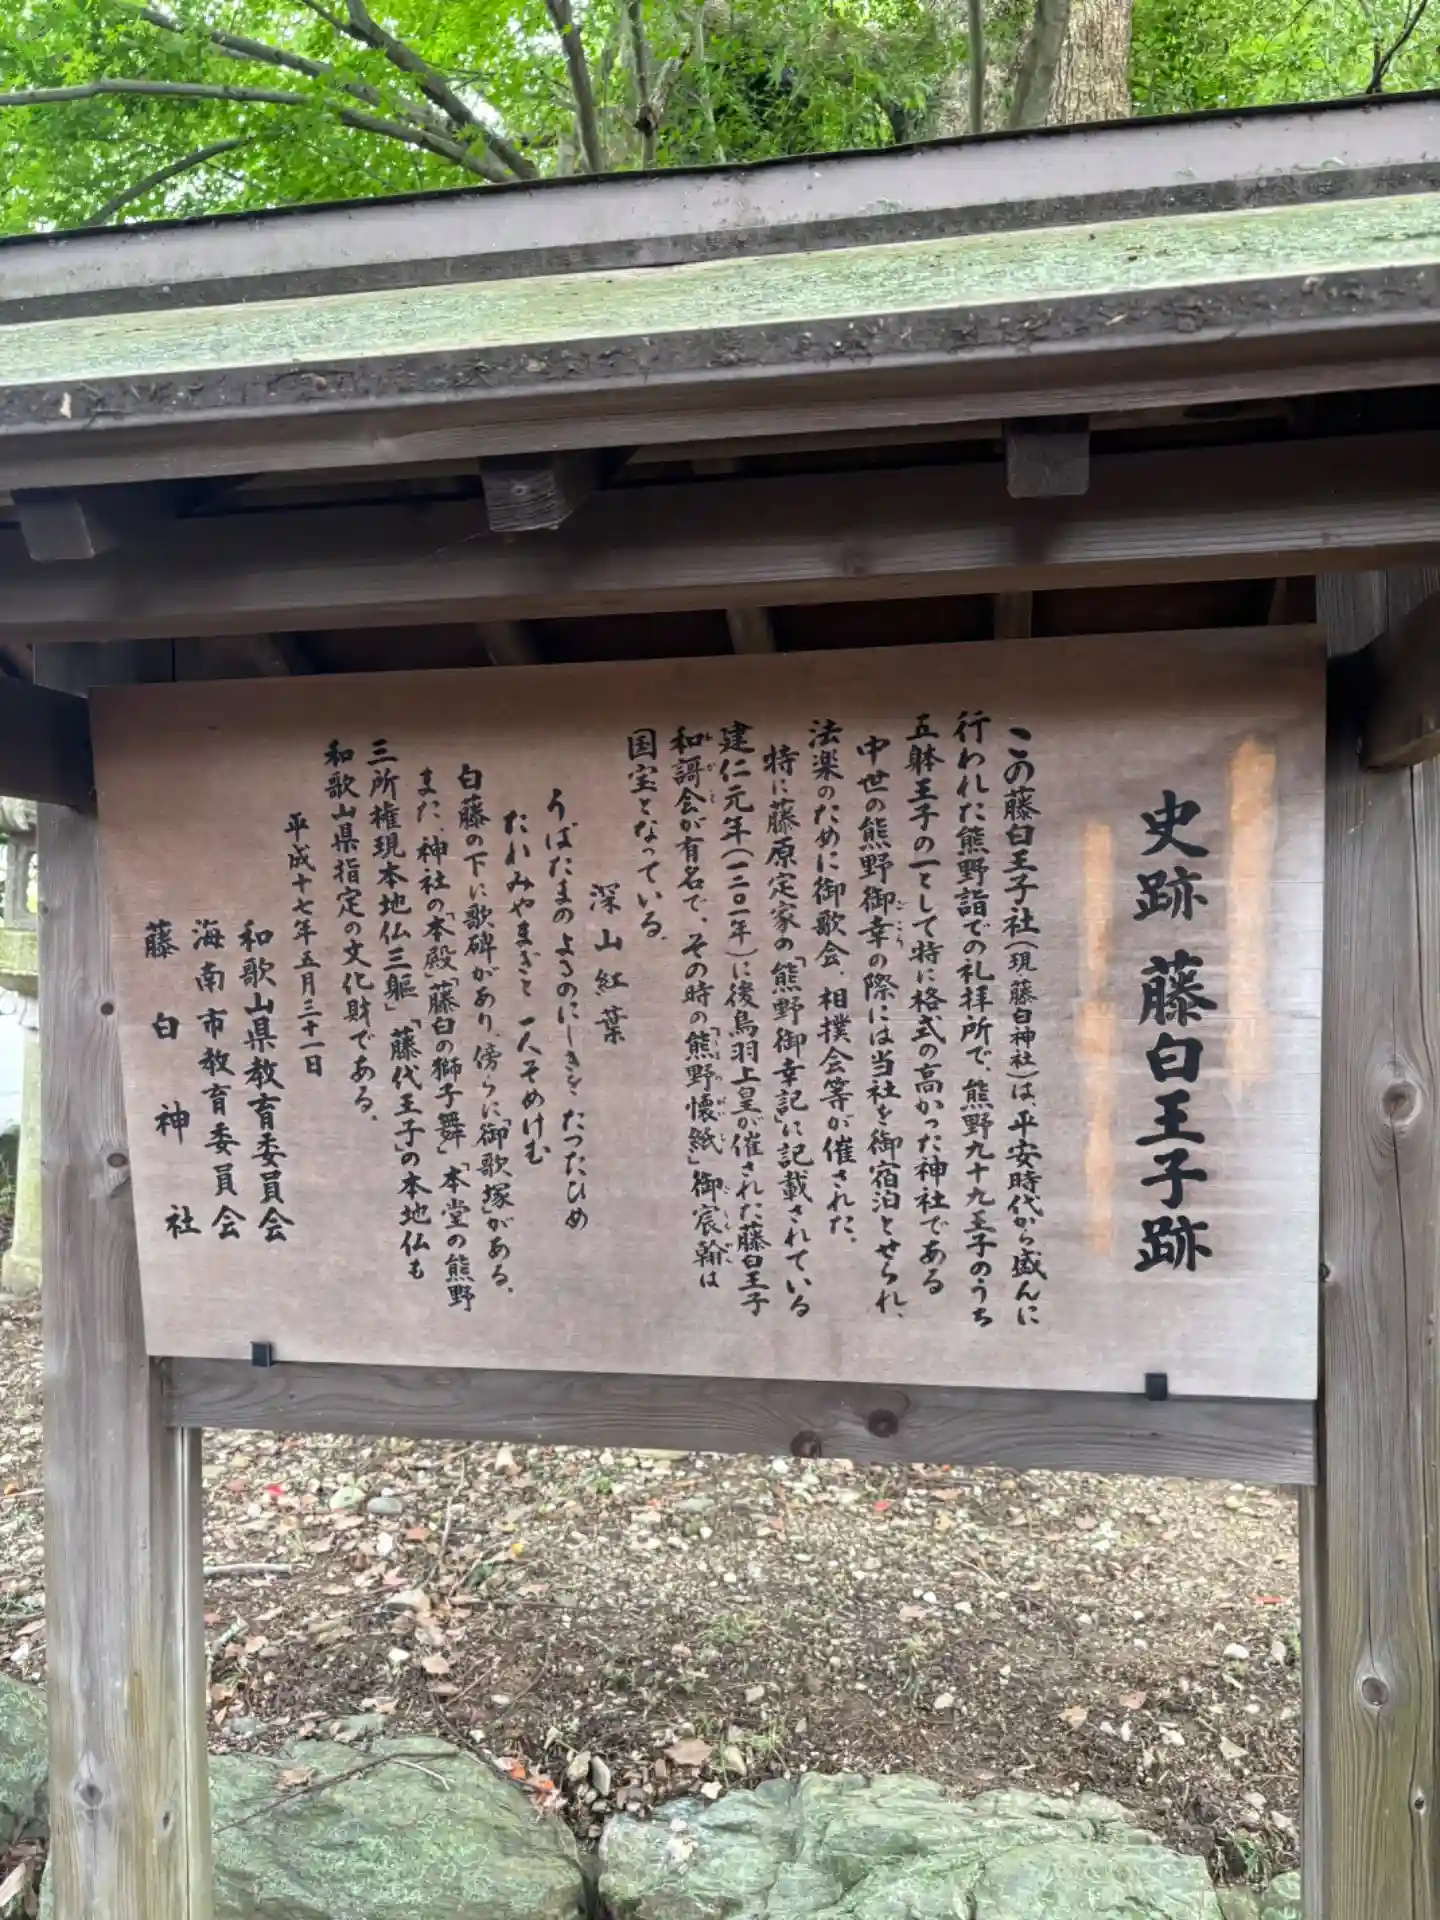 史跡 藤白王子跡
この藤白王子社(現、藤白神社)は、平安時代から盛んに
行われた熊野詣での礼拝所で、熊野九十九王子のうち
五躰王子の一として特に格式の高かった神社である
中世の熊野御幸の際には当社を御宿泊とせられ、
法楽のために御歌会、相撲会等が催された。
特に藤原定家の「熊野御幸記」に記載されている
建仁元年(一二〇一年)に後鳥羽上皇が催された藤白王子
和謌会が有名で、その時の「熊野懐紙」御宸翰は
国宝となっている。
深山紅葉
うばたまの よるのにしきを たつたひめ
たれみやまぎと 一人そめけむ
白藤の下に歌碑があり、傍らに「御歌塚」がある。
また、神社の「本殿」「藤白の獅子舞」「本堂の熊野
三所権現本地仏三躯」「藤代王子」の本地仏も
和歌山県指定の文化財である。
平成十七年五月三十一日
和歌山県教育委員会
海南市教育委員会
藤白神社